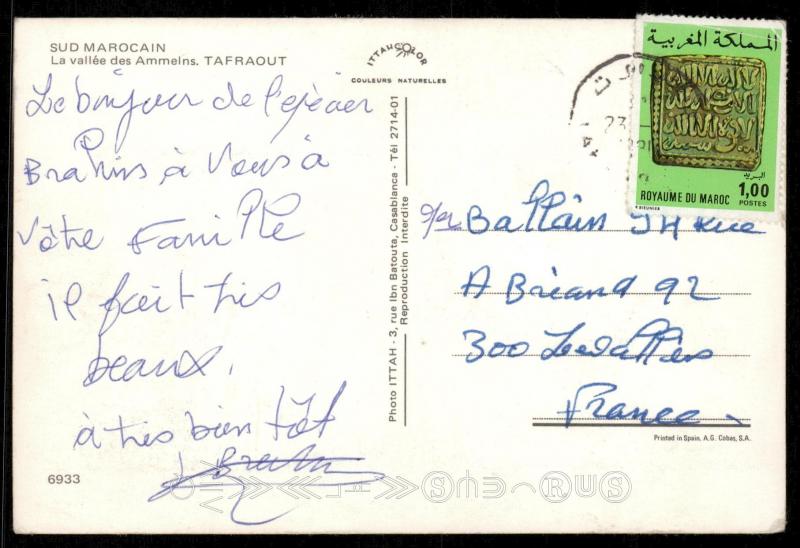 SUD MAROCAIN
La vallée des Ammelns. TAFRAOUT
ITTAHCOLOR
COULEURS NATURELLES
Le bonjour de l'epécier
Brahins à Vous à
Vôtre Famille
il fait tres
beaux.
à tres bien tôt
6933
Photo ITTAH - 3, rue Ibn Batouta, Casablanca - Tél 2714-01
Reproduction Interdite
المملكة المغربية
البريد
ROYAUME DU MAROC 1,00
POSTES
23
Ballain 54 Rue
A Briand 92
300 Levallois
France
Printed in Spain, A.G. Cobas, S.A.